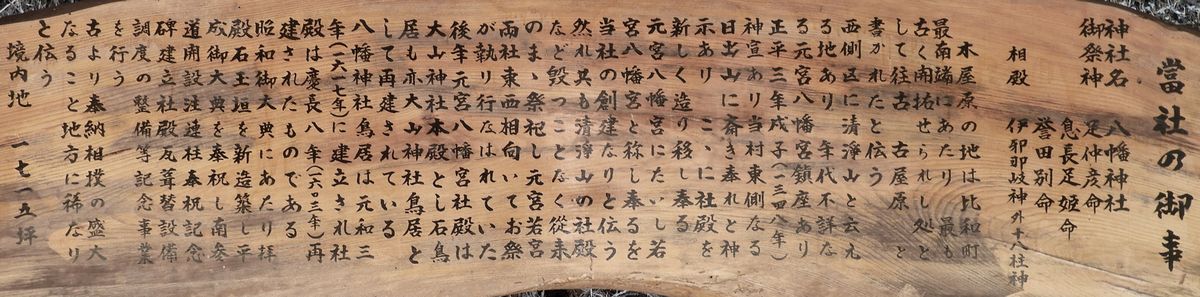 當社の御事
神社名 八幡神社
御祭神 足仲彦命
息長足姫命
誉田別命
相殿 伊邪那岐神外十八柱神
木屋原の地は比和町
最南端にあたり 最も
古く開拓せられし処と
して往古 古屋原と
書かれたと伝う
西側区に清浄山と云元
る地あり 年代不詳な
る元宮八幡宮鎮座あり
正平三年戊子(一三四八年)
神宣あり当村東側なる
日出山に斎き奉れと神
示あり こゝに社殿を
新しく造り移し奉る
元宮八幡宮にたいし若
宮八幡宮と称し奉るを
当社の創建なりと伝う
然れ共清浄山の社殿
など毀つことなく從来
のまゝ祭祀し元宮若宮
両社東西相向いてお祭
が執り行なはれていた
後年元宮八幡宮社殿は
大山神社本殿とし石鳥
居も亦大山神社鳥居と
しても再建されている
八幡神社鳥居は元和三
年(一六一七年)に建立され社
殿は慶長八年(一六〇三年)再
建されたものである
昭和御大典にあたり拝
殿石玉垣を新造築し平
成御大典を奉祝し南参
道開設注連柱奉祝記念
碑建立社殿瓦葺替設備
調度の整備等記念事業
を行う
古より奉納相撲の盛大
なること地方に稀なり
と伝う
境内地 一七一五坪